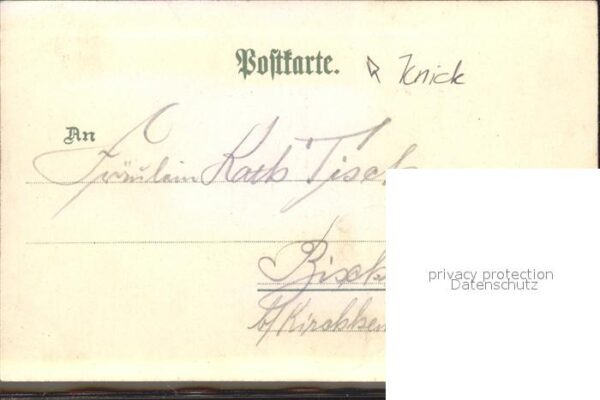 Postkarte. Knick
An
Fräulein Kath Tisch
Bisch
b/ Kirchhe
privacy protection
Datenschutz